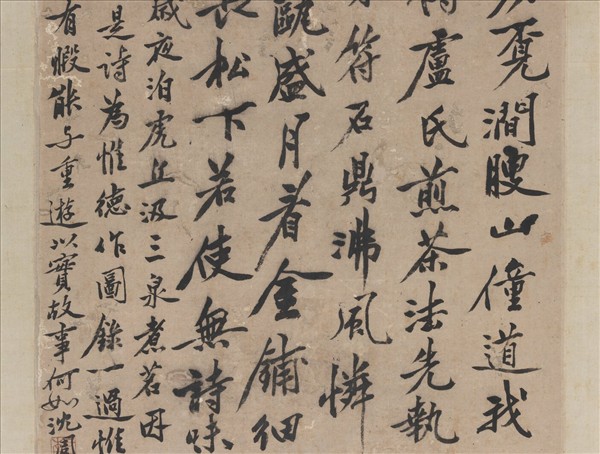 覓澗腴山僮道我
盧氏煎茶法先執
符石鼎沸風憐
甌盛月看金鋪細
長松下若使無詩味
歲夜泊虎丘汲三泉煮茗因
是詩為惟德作圖錄一過惟
有暇能与重遊以實故事何如沈周